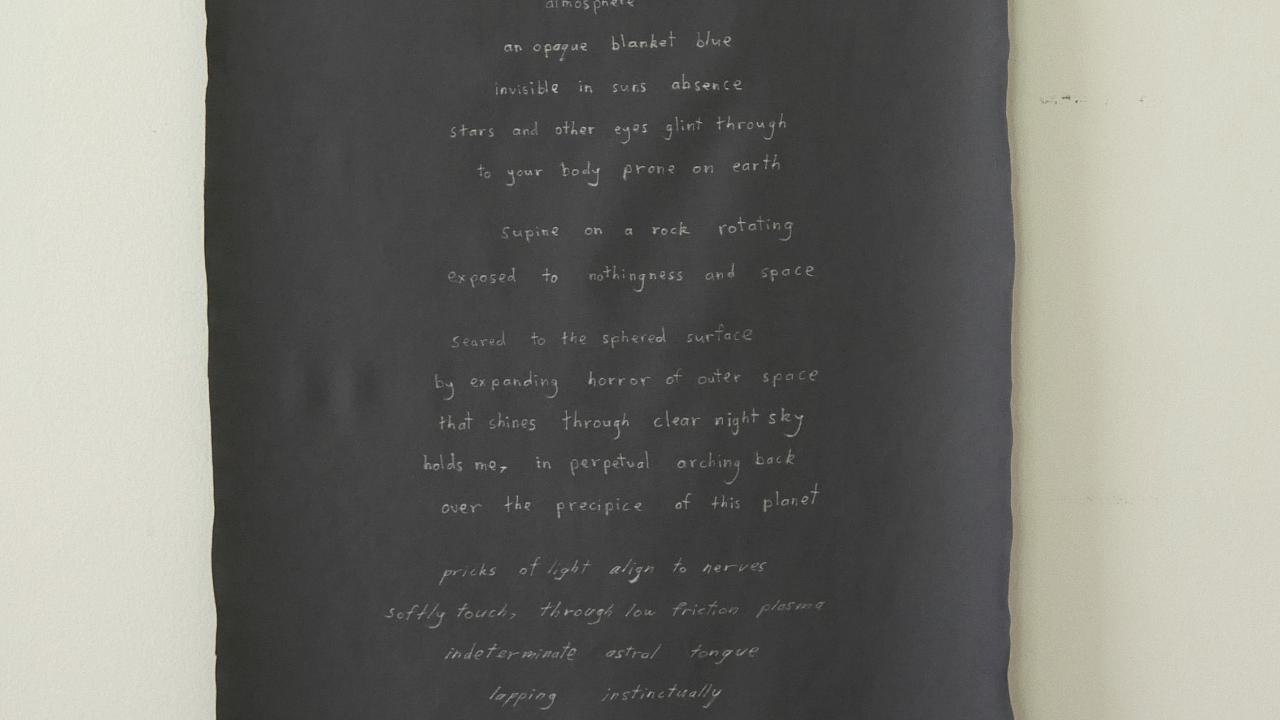 atmosphere
an opaque blanket blue
invisible in suns absence
stars and other eyes glint through
to your body prone on earth
supine on a rock rotating
exposed to nothingness and space
seared to the sphered surface
by expanding horror of outer space
that shines through clear night sky
holds me, in perpetual arching back
over the precipice of this planet
pricks of light align to nerves
softly touch, through low friction plasma
indeterminate astral tongue
lapping instinctually